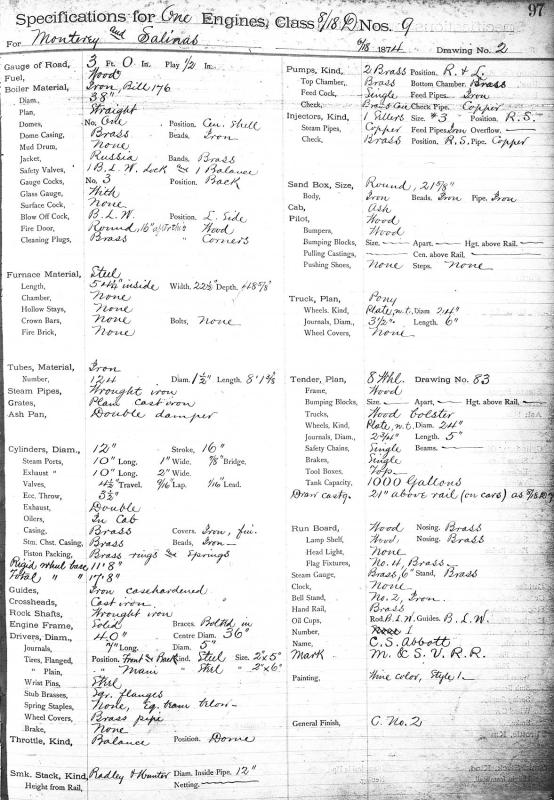 97
Specifications for One Engines, Class 8/18 D Nos. 9
For Monterey and Salinas 6/18 1874 Drawing No. 2
Gauge of Road, 3 Ft. 0 In. Play 1/2 In.
Fuel, Wood
Boiler Material, Iron, Bill 176
Diam., 38"
Plan, Straight
Domes, No. One Position, Cen. Shell
Dome Casing, Brass Beads, Iron
Mud Drum, None
Jacket, Russia Bands, Brass
Safety Valves, 1 B.L.W. Lock & 1 Balance
Gauge Cocks, No. 3 Position, Back
Glass Gauge, With
Surface Cock, None
Blow Off Cock, B.L.W. Position, L. Side
Fire Door, Round, 16" Wood
Cleaning Plugs, Brass " Corners
Furnace Material, Steel
Length, inside Width, Depth,
Chamber, None
Hollow Stays, None
Crown Bars, None Bolts, None
Fire Brick, None
Tubes, Material, Iron
Number, 124 Diam. 1 1/2" Length,
Steam Pipes, Wrought iron
Grates, Plain Cast iron
Ash Pan, Double damper
Cylinders, Diam., 12" Stroke, 16"
Steam Ports, 10" Long, 1" Wide, 7/8" Bridge,
Exhaust " 10" Long, 2" Wide,
Valves, 4 1/2" Travel, 9/16" Lap, 1/16" Lead.
Ecc. Throw,
Exhaust, Double
Oilers, In Cab
Casing, Brass Covers, Iron, fin.
Stm. Chst. Casing, Brass Beads, Iron
Piston Packing, Brass rings & Springs
Rigid wheel base, 11' 8"
Total " " 17' 8"
Guides, Iron casehardened
Crossheads, Cast iron
Rock Shafts, Wrought iron
Engine Frame, Solid Braces, Bolted in
Drivers, Diam., 40" Centre Diam. 36"
Journals, Diam. 5"
Tires, Flanged, Position, Front & Back Kind, Steel Size, 2" x 5"
" Plain, " Main " Steel " 2" x 6"
Wrist Pins, Steel
Stub Brasses, Sqr. flanges
Spring Staples, None, Eq. beam below
Wheel Covers, Brass pipe
Brake, None
Throttle, Kind, Balance Position, Dome
Smk. Stack, Kind, Radley & Hunter Diam. Inside Pipe, 12"
Height from Rail, Netting,
Pumps, Kind, 2 Brass Position, R. & L.
Top Chamber, Brass Bottom Chamber, Brass
Feed Cock, Single Feed Pipes, Iron
Check, Brass One Check Pipe, Copper
Injectors, Kind, 1 Sellers Size, #3 Position, R.S.
Steam Pipes, Copper Feed Pipes, Iron Overflow,
Check, Brass Position, R.S. Pipe, Copper
Sand Box, Size, Round, 21 5/8"
Body, Iron Beads, Iron Pipe, Iron
Cab, Ash
Pilot, Wood
Bumpers, Wood
Bumping Blocks, Size, Apart, Hgt. above Rail,
Pulling Castings, Cen. above Rail,
Pushing Shoes, None Steps, None
Truck, Plan, Pony
Wheels, Kind, Plate, w.t., Diam. 24"
Journals, Diam., 3 1/2" Length, 6"
Wheel Covers, None
Tender, Plan, 8 Whl. Drawing No. 83
Frame, Wood
Bumping Blocks, Size, Apart, Hgt. above Rail,
Trucks, Wood bolster
Wheels, Kind, Plate, w.t. Diam. 24"
Journals, Diam., 2 3/4" Length, 5"
Safety Chains, Single Beams,
Brakes, Single
Tool Boxes, Top
Tank Capacity, 1000 Gallons
Draw castg. 21" above rail (on cars) as
Run Board, Wood Nosing, Brass
Lamp Shelf, Wood, Nosing, Brass
Head Light, None
Flag Fixtures, No. 4, Brass
Steam Gauge, Brass, 6" Stand, Brass
Clock, None
Bell Stand, No. 2, Iron
Hand Rail, Brass
Oil Cups, Rod B.L.W. Guides, B.L.W.
Number, 1
Name, C. S. Abbott
Mark M. & S. V. R. R.
Painting, Wine color, Style 1
General Finish, C. No. 2